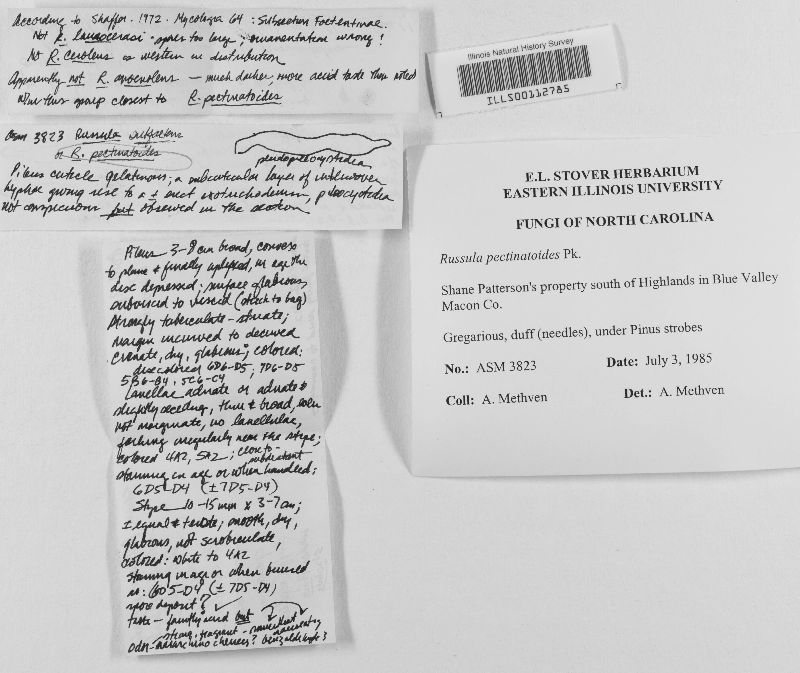 According to Shaffer. 1972. Mycologia 64: Subsection Foetentinae.
Not R. laurocerasi - spores too large; ornamentation wrong!
Not R. cerolens as western in distribution
Apparently not R. amoenolens — much darker, more acrid taste than noted
w/in this group closest to R. pectinatoides
asm 3823 Russula
or R. pectinatoides
pseudopleurocystidia
Pileus cuticle gelatinous; a subcuticular layer of interwoven
hyphae giving rise to a ± erect ixotrichodermium, pileocystidia
not conspicuous but observed in the section
Pileus 3-8 cm broad, convex
to plane & finally uplifted, in age the
disc depressed; surface glabrous,
subviscid to viscid (stuck to bag)
strongly tuberculate-striate;
margin incurved to decurved
crenate, dry, glabrous; colored:
disc colored 6D6-D5, 7D6-D5
5B6-B4, 5C6-C4
Lamellae adnate or adnate &
slightly seceding, thin & broad, even
not marginate, no lamellulae,
forking irregularly near the stipe;
colored 4A2, 5A2; close to-
subdistant
staining in age or when handled:
6D5-D4 (±7D5-D4)
Stipe 10-15 mm x 3-7 cm;
± equal & terete; smooth, dry,
glabrous, not scrobiculate,
colored: white to 4A2
staining in age or when bruised
as: 6D5-D4 (±7D5-D4)
spore deposit?
taste - faintly acrid but
strong, fragrant -
odor - maraschino cherries? benzaldehyde?
Illinois Natural History Survey
ILLS00112785
E.L. STOVER HERBARIUM
EASTERN ILLINOIS UNIVERSITY
FUNGI OF NORTH CAROLINA
Russula pectinatoides Pk.
Shane Patterson's property south of Highlands in Blue Valley
Macon Co.
Gregarious, duff (needles), under Pinus strobes
No.: ASM 3823 Date: July 3, 1985
Coll: A. Methven Det.: A. Methven